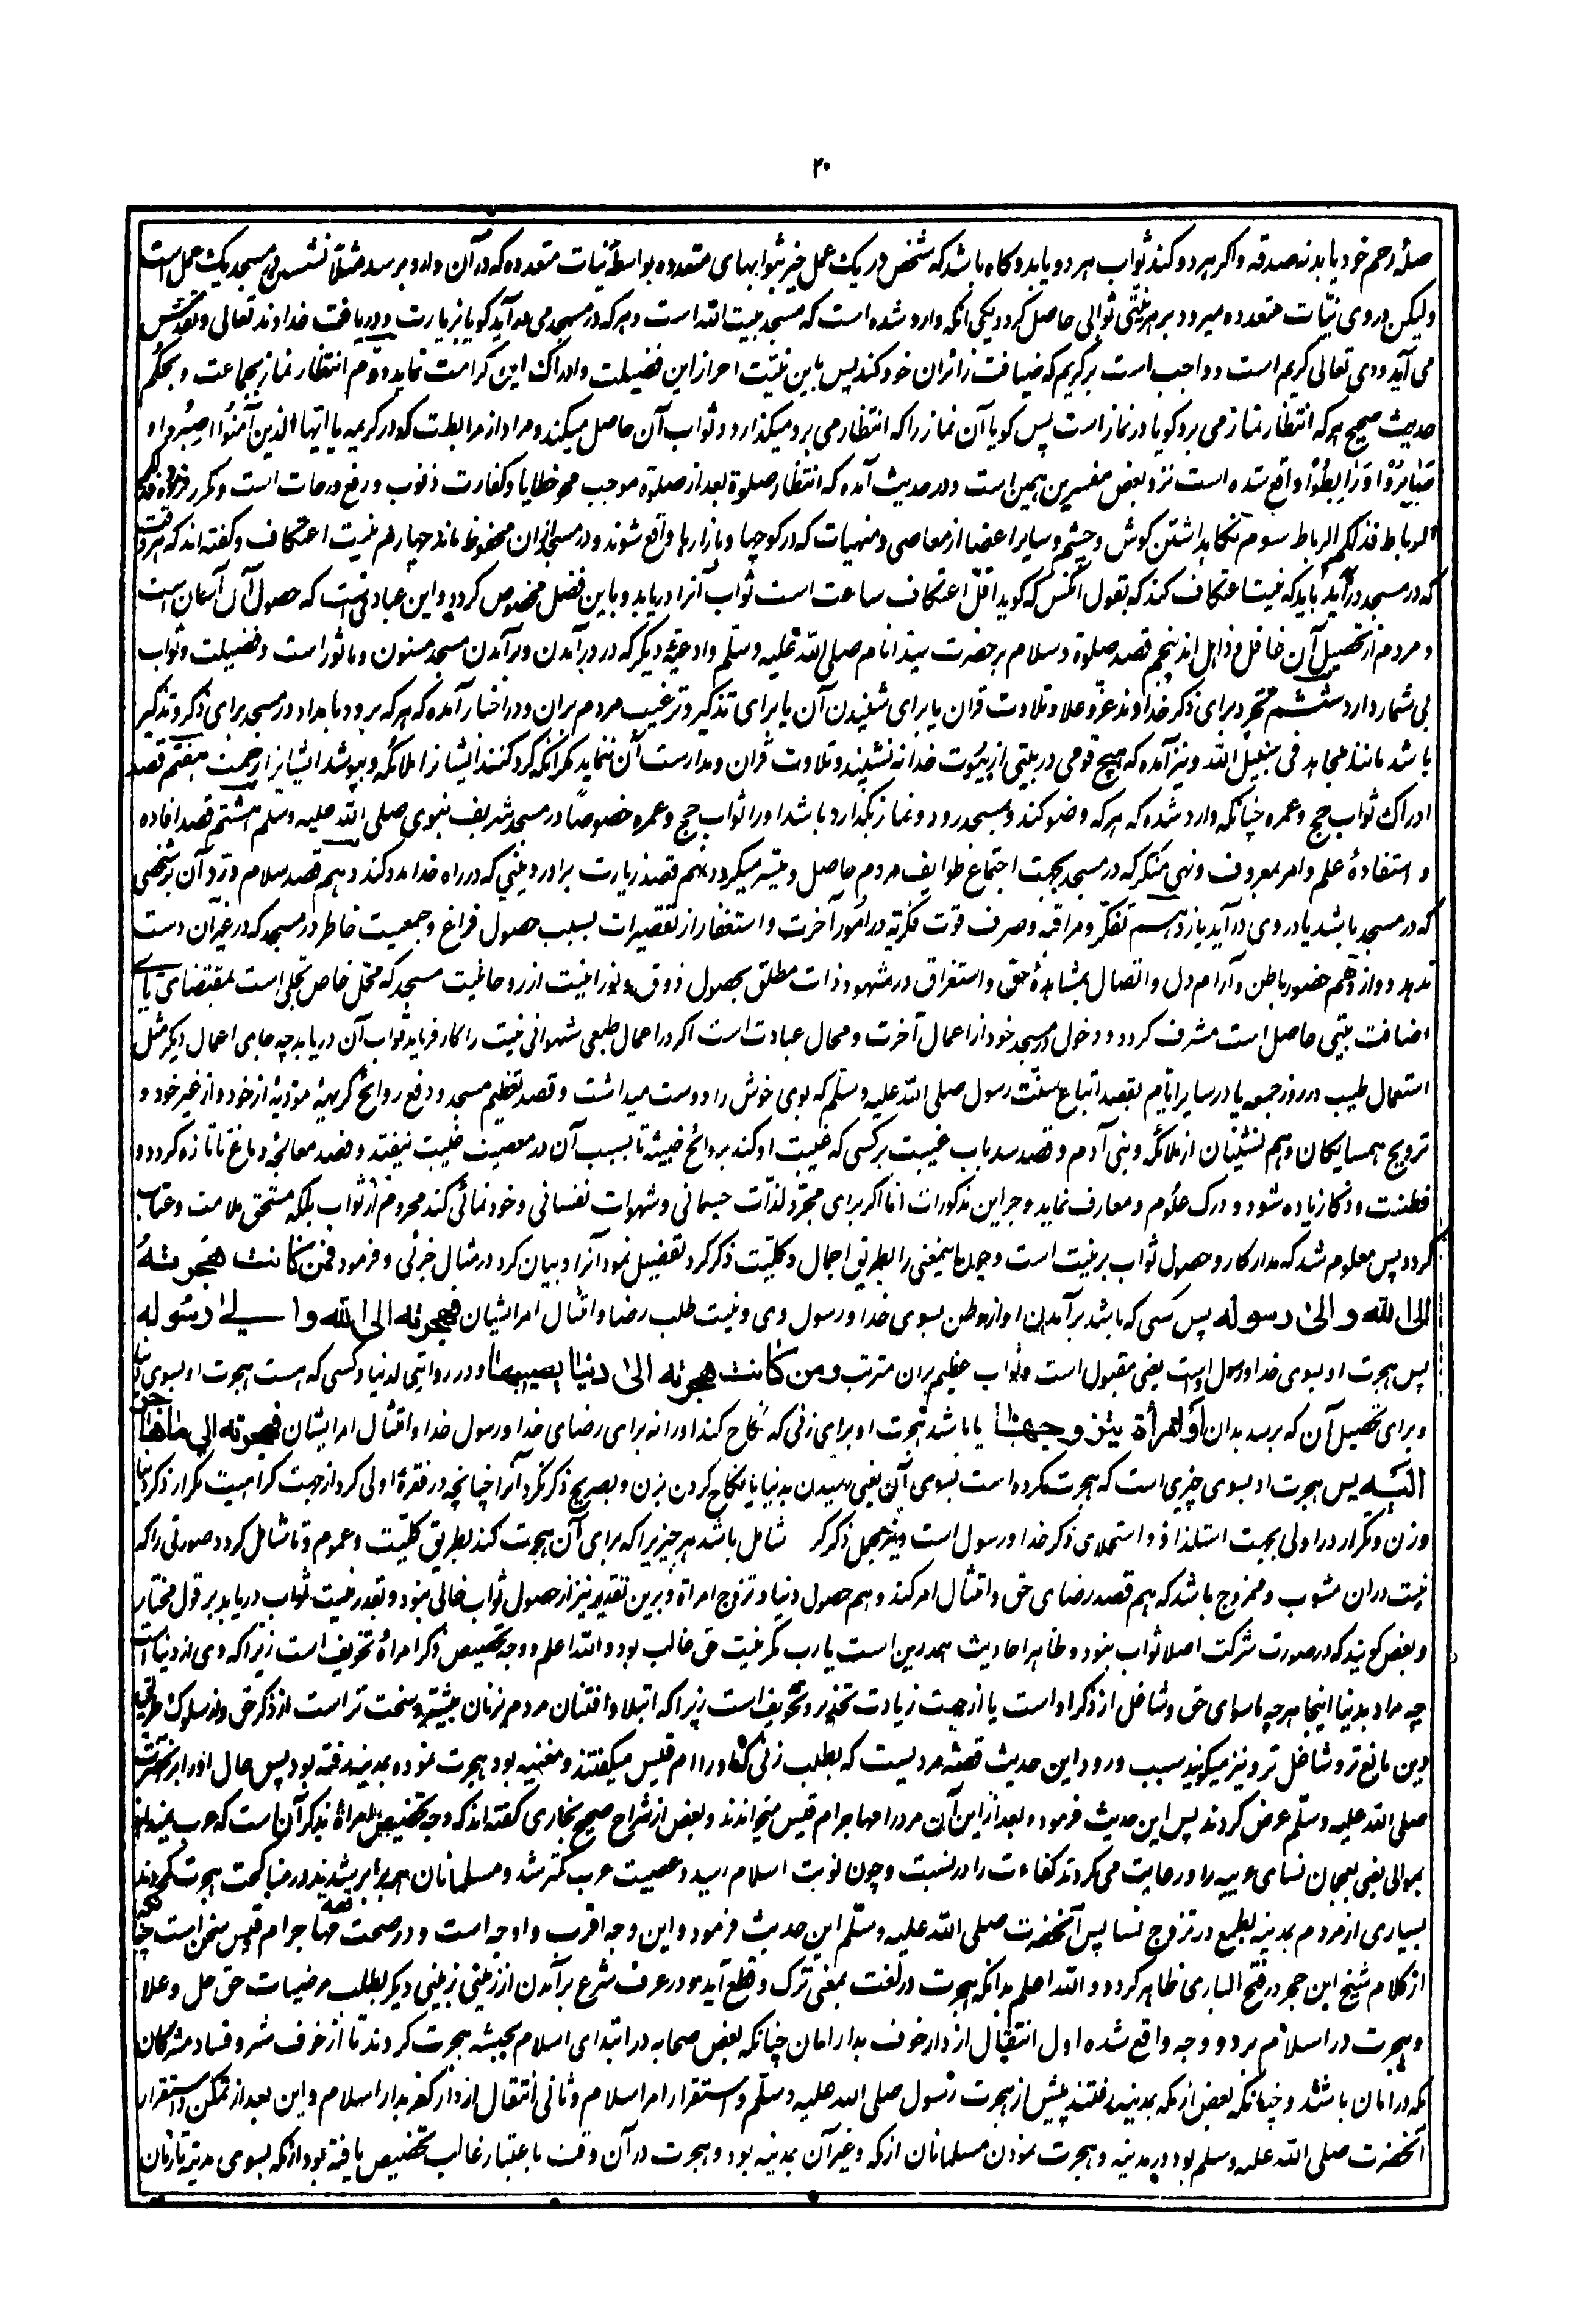 ۳۰
صلهٔ رحم خود یابد نه صدقه و اکر هر دو کند ثواب هر دو یابد و کاه باشد که شخص در یک عمل خیر ثوابهای متعدده بواسطهٔ نیات متعدده که در آن دارد برسد مثلا نشستن در مسجد یک عمل است
ولیکن در وی نیّات متعدده میرود بر هر نیتی ثوابی حاصل کردد یکی انکه وارد شده است که مسجد بیت الله است و هر که در مسجد می در آید کویا بزیارت و دریافت خداوند تعالی و تقدس
می آید و وی تعالی کریم است و واجب است بر کریم که ضیافت زائران خود کند پس باین نیّت احراز این فضیلت و ادراک این کرامت نماید دوم انتظار نماز بجماعت و بحکم
حدیث صحیح هر که انتظار نماز می برد کویا در نماز است پس کویا آن نماز را که انتظار می برد میکذارد و ثواب آن حاصل میکند و مراد از مرابطت که در کریمه یا ایها الذین آمنوا اصبروا و
صابروا و رابطوا واقع شده است نزد بعض مفسرین همین است و در حدیث آمده که انتظار صلوة بعد از صلوة موجب محو خطایا و کفارت ذنوب و رفع درجات است و مکرر فرموده فذلکم
الرباط فذلکم الرباط سوم نکاهداشتن کوش و چشم و سایر اعضا از معاصی و منهیات که در کوچها و بازارها واقع شوند و در مسجد از ان محفوظ ماند چهارم نیت اعتکاف و کفته اند که هر وقت
که در مسجد درآید باید که نیت اعتکاف کند که بقول آنکس که کوید اقل اعتکاف ساعت است ثواب آنرا دریابد و باین فضل مخصوص کردد و این عبادتی است که حصول آن آسان است
و مردم از تحصیل آن غافل و ذاهل اند پنجم قصد صلوة و سلام بر حضرت سید انام صلی الله علیه وسلّم و ادعیهٔ دیکر که در درآمدن و برآمدن مسجد مسنون و ماثور است و فضیلت و ثواب
بی شمار دارد ششم تجرد برای ذکر خداوند عزّ و علا و تلاوت قران یا برای شنیدن آن یا برای تذکیر و ترغیب مردم بران و در اخبار آمده که هر که برود بامداد در مسجد برای ذکر و تذکیر
باشد مانند مجاهد فی سبیل الله و نیز آمده که هیچ قومی در بیتی از بیوت خدا ننشینند و تلاوت قران و مدارست آن ننماید مکر آنکه کرد کنند ایشانرا ملائکه و بپوشد ایشانرا رحمت هفتم قصد
ادراک ثواب حج و عمره چنانکه وارد شده که هر که وضو کند و بمسجد رود و نماز بکذارد باشد اورا ثواب حج و عمره خصوصا در مسجد شریف نبوی صلی الله علیه وسلم هشتم قصد افاده
و استفادهٔ علم و امر بمعروف و نهی منکر که در مسجد بجهت اجتماع طوایف مردم حاصل و میسر میکردد نهم قصد زیارت برادر دینی که در راه خدا مدد کند دهم قصد سلام و رد آن بر شخصی
که در مسجد باشد یا در وی درآید یازدهم تفکر و مراقبه و صرف قوت فکریه در امور آخرت و استغفار از تقصیرات بسبب حصول فراغ و جمعیت خاطر در مسجد که در غیر آن دست
ندهد دوازدهم حضور باطن و آرام دل و اتصال بمشاهدهٔ حق و استغراق در شهود ذات مطلق بحصول ذوق و نورانیت از روحانیت مسجد که محل خاص تجلی است بمقتضای یای
اضافت بیتی حاصل است مشرف کردد و دخول در مسجد خود از اعمال آخرت و محال عبادت است اکر در اعمال طبعی شهوانی نیت را کار فرماید ثواب آن دریابد چه جای اعمال دیکر مثل
استعمال طیب در روز جمعه یا در سایر ایّام بقصد اتباع سنّت رسول صلی الله علیه وسلّم که بوی خوش را دوست میداشت و قصد تعظیم مسجد و دفع روائح کریههٔ موذیهٔ از خود و از غیر خود و
ترویح همسایکان و هم نشینان از ملائکه و بنی آدم و قصد سد باب غیبت بر کسی که غیبت او کند بروائح خبیثه تا بسبب آن در معصیت غیبت نیفتد و قصد معالجهٔ دماغ تا تازه کردد و
فطنت و ذکا زیاده شود و درک علوم و معارف نماید و جز این مذکورات اما اکر برای مجرّد لذّات جسمانی و شهوات نفسانی و خودنمائی کند محروم از ثواب بلکه مستحق ملامت و عتاب
کردد پس معلوم شد که مدار کار و حصول ثواب بر نیت است و چون اینمعنی را بطریق اجمال و کلیّت ذکر کرد تفصیل نمود آنرا و بیان کرد در مثال جزئی و فرمود فمن کانت هجرته
الی الله و الی رسوله پس کسی که باشد برآمدن او از وطن بسوی خدا و رسول وی و نیت طلب رضا و امتثال امر ایشان فهجرته الی الله و الی رسوله
پس هجرت او بسوی خدا و رسول است یعنی مقبول است و ثواب عظیم بران مترتب و من کانت هجرته الی دنیا یصیبها و در روایتی لدنیا و کسی که هست هجرت او بسوی دنیا
و برای تحصیل آن که برسد بدان او امرأة یتزوجها یا باشد هجرت او برای زنی که نکاح کند اورا نه برای رضای خدا و رسول خدا و امتثال امر ایشان فهجرته الی ما هاجر
الیه پس هجرت او بسوی چیزی است که هجرت کرده است بسوی آن یعنی رسیدن بدنیا یا نکاح کردن بزن و بصریح ذکر نکرد آنرا چنانچه در فقرهٔ اولی کرد از جهت کراهیت تکرار ذکر دنیا
و زن و تکرار در اولی بجهت استلذاذ و استحلای ذکر خدا و رسول است و نیز مجمل ذکر کرد شامل باشد هر چیزیرا که برای آن هجرت کند بطریق کلیّت و عموم و تا شامل کردد صورتی را که
نیت دران مشوب و ممزوج باشد که هم قصد رضای حق و امتثال امر کند و هم حصول دنیا و تزوج امراة و برین تقدیر نیز از حصول ثواب خالی نبود و بقدر نیت ثواب دریابد بر قول مختار
و بعض کویند که در صورت شرکت اصلا ثواب نبود و ظاهر احادیث همدرین است یا رب مکر نیت حق غالب بود و الله اعلم و وجه تخصیص ذکر امرأة تخویف است زیرا که وی از دنیا است
چه مراد بدنیا اینجا هر چه ماسوای حق و شاغل از ذکر او است یا از جهت زیادت تحذیر و تخویف است زیرا که ابتلا و افتنان مردم بزنان بیشتر و سخت تر است از ذکر حق و از سلوک طریق
دین مانع تر و شاغل تر و نیز میکویند سبب ورود این حدیث قصهٔ مردیست که بطلب زنی که اورا ام قیس میکفتند و مغنیه بود هجرت نموده بمدینه رفته بود پس حال اورا بر آنحضرت
صلی الله علیه وسلّم عرض کردند پس این حدیث فرمود و بعد از این آن مرد را مهاجر ام قیس میخواندند و بعض از شراح صحیح بخاری کفته اند که وجه تخصیص امرأة بذکر آن است که عرب
بموالی یعنی بعجمان نسای عربیه را و رعایت می کردند کفاءت را در نسبت و چون نوبت اسلام رسید و عصبیت عرب کمتر شد و مسلمانان همه برابر شدند در مناکحت هجرت کردند
بسیاری از مردم بمدینه بطمع در تزوج نسا پس آنحضرت صلی الله علیه وسلّم این حدیث فرمود و این وجه اقرب و اوجه است و در صحت قصهٔ مهاجر ام قیس سخن است چنانکه
از کلام شیخ ابن حجر در فتح الباری ظاهر کردد و الله اعلم بدانکه هجرت در لغت بمعنی ترک و قطع آید و در عرف شرع برآمدن از زمینی بزمینی دیکر بطلب مرضیات حق جل و علا
و هجرت در اسلام بر دو وجه واقع شده اول انتقال از دار خوف بدار امان چنانکه بعض صحابه در ابتدای اسلام بحبشه هجرت کردند تا از خوف شر و فساد مشرکان
مکه در امان باشند و چنانکه بعض از مکه بمدینه رفتند پیش از هجرت رسول صلی الله علیه وسلّم و استقرار امر اسلام و ثانی انتقال از دار کفر بدار اسلام و این بعد از تمکن و استقرار
آنحضرت صلی الله علیه وسلم بود در مدینه و هجرت نمودن مسلمانان از مکه و غیر آن بمدینه بود و هجرت در آن وقت باعتبار غالب تخصیص یافته بود از مکه بسوی مدینه تا زمان